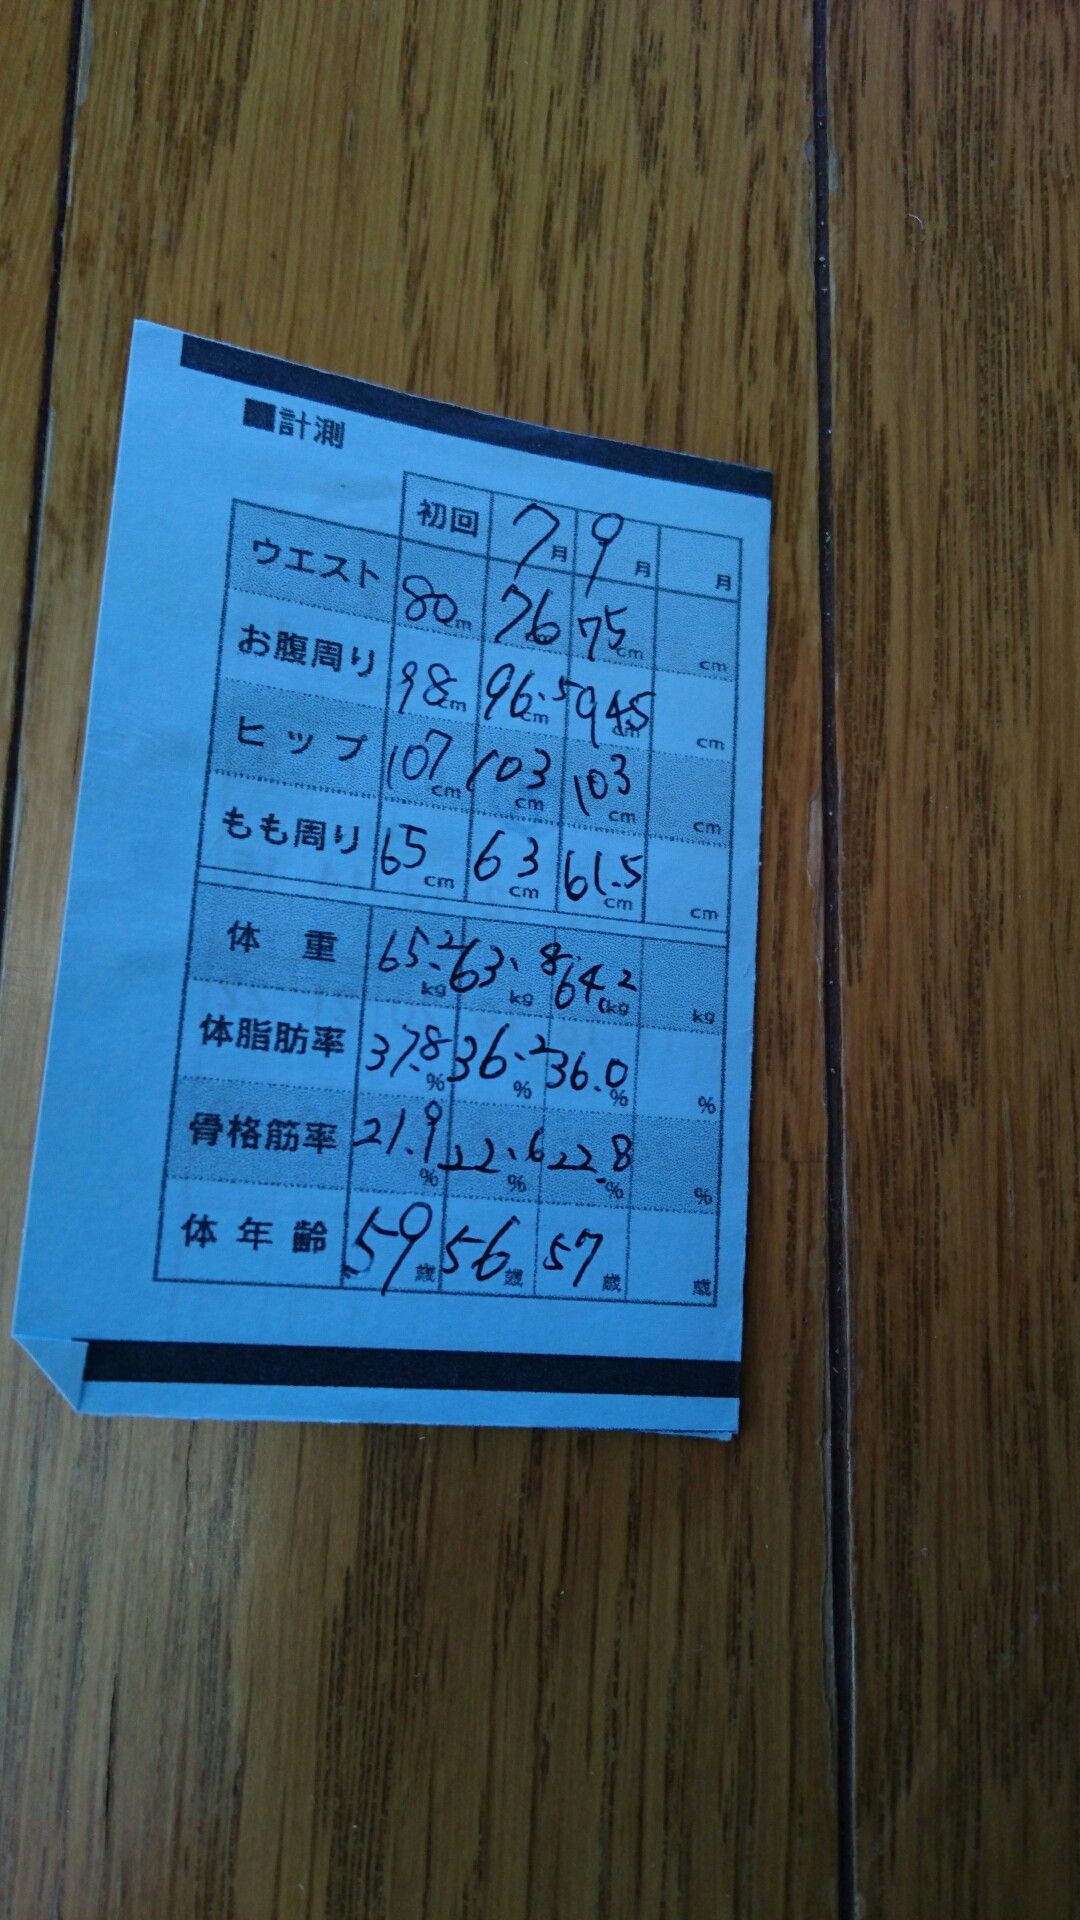 ■計測
初回 7月 9月 月
ウエスト 80cm 76 75cm cm
お腹周り 98cm 96.5cm 94.5cm cm
ヒップ 107cm 103cm 103cm cm
もも周り 65cm 63cm 61.5cm cm
体重 65.2kg 63.8kg 64.2kg kg
体脂肪率 37.8% 36.2% 36.0% %
骨格筋率 21.9% 22.6% 22.8% %
体年齢 59歳 56歳 57歳 歳